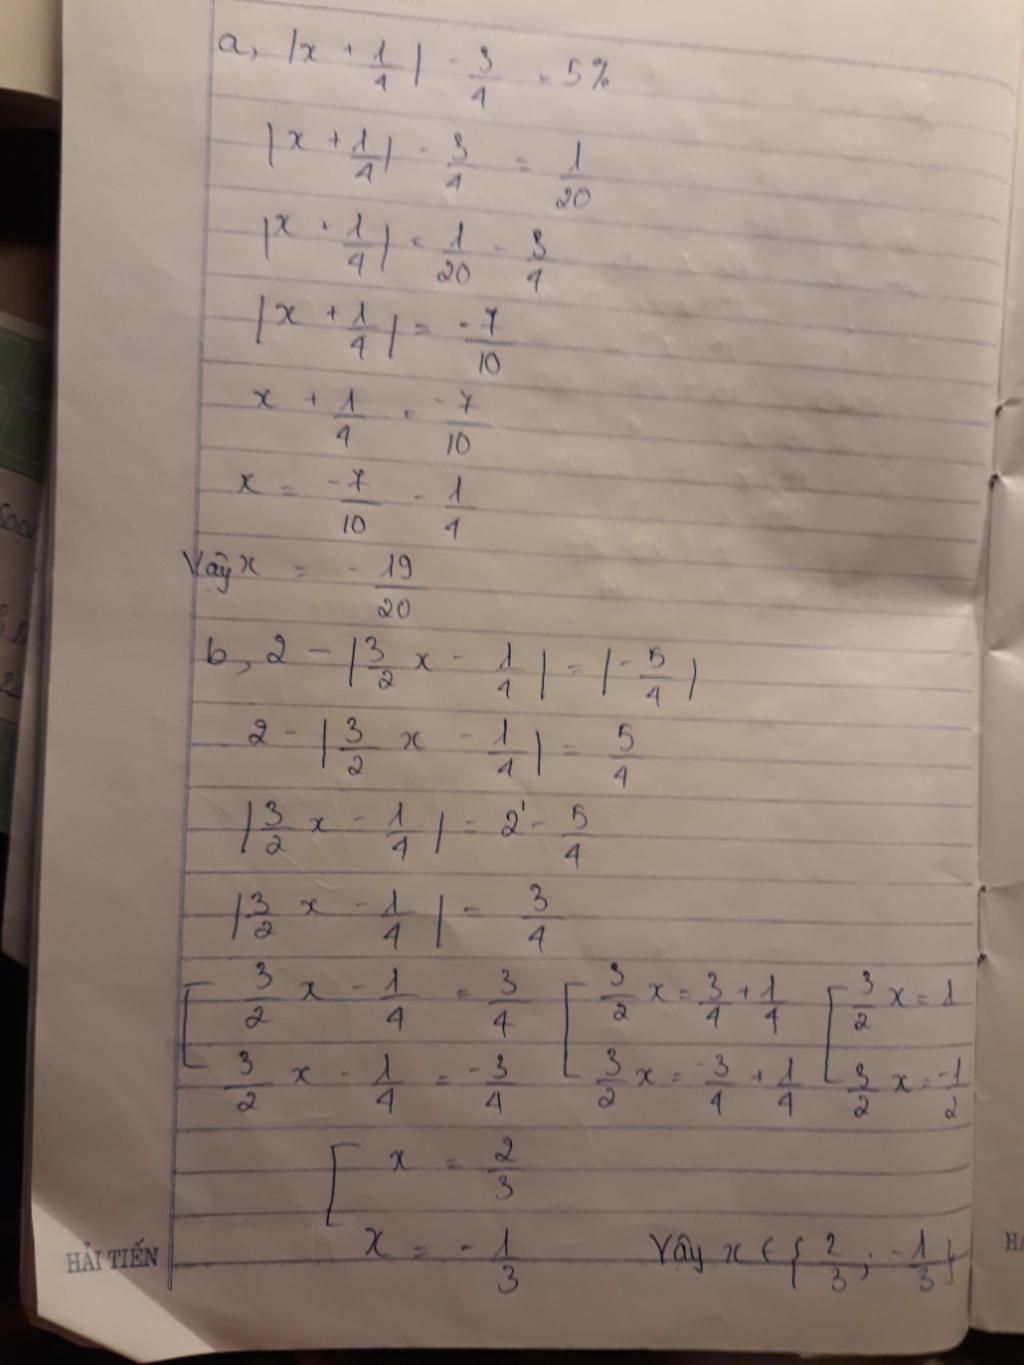 a, |x + 1/4| - 3/4 = 5%
|x + 1/4| - 3/4 = 1/20
|x + 1/4| = 1/20 - 3/4
|x + 1/4| = -7/10
x + 1/4 = -7/10
x = -7/10 - 1/4
Vậy x = -19/20
b, 2 - |3/2 x - 1/4| = |-5/4|
2 - |3/2 x - 1/4| = 5/4
|3/2 x - 1/4| = 2 - 5/4
|3/2 x - 1/4| = 3/4
[ 3/2 x - 1/4 = 3/4 [ 3/2 x = 3/4 + 1/4 [ 3/2 x = 1
3/2 x - 1/4 = -3/4 3/2 x = -3/4 + 1/4 3/2 x = -1/2
[ x = 2/3
x = -1/3 Vậy x ∈ {2/3; -1/3}
HẢI TIẾN